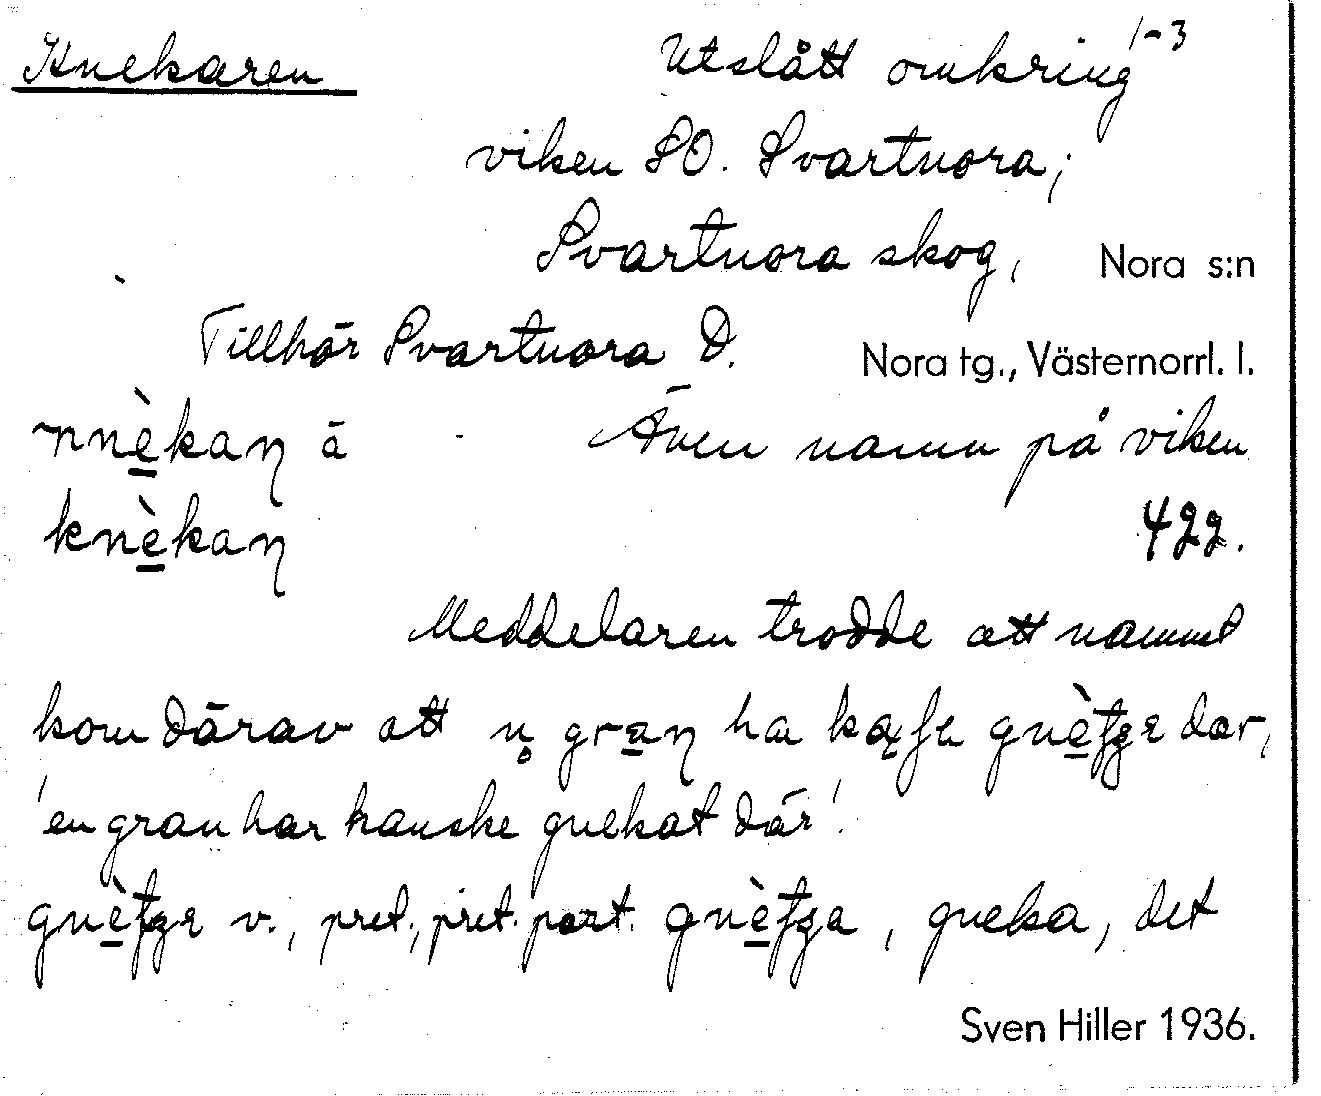 Knekaren
Utslått omkring 1-3
viken SO. Svartnora;
Svartnora skog, Nora s:n
Tillhör Svartnora D. Nora tg., Västernorrl. l.
nnèkaɳ ä Även namn på viken
knèkaɳ 422.
Meddelaren trodde att namnet
kom därav att graɳ ha där,
'en gran har kanske gnekat där'.
v., pret., pret. part. , gneka, det
Sven Hiller 1936.